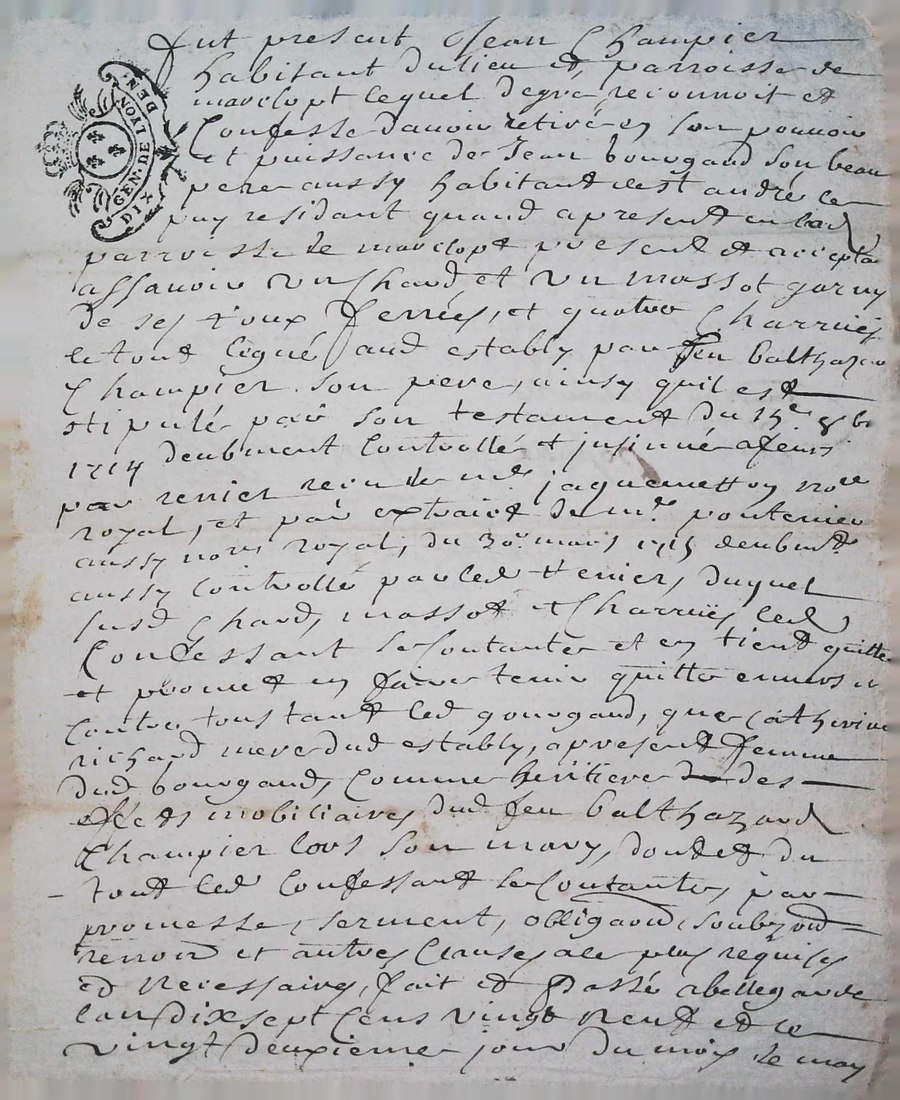 GEN. DE LYON
DIX DEN.
fut present Jean Champier
habitant du lieu et parroisse de
marclopt lequel de gre reconnoit et
Confesse davoir retiré en son pouvoir
et puissance de Jean bourgaud son beau
pere aussy habitant de st andré le
puy residant quand apresent en lad
parroisse de marclopt present et accepta
assavoir un Chard et un massot garny
de ses roux ferrées, et quatre Charrues
le tout legué aud estably par feu balthazar
Champier son pere, ainsy quil est
stipulé par son testament du 15e 8b
1714 deubment Controllé et insinué a feurs
par terrier receu de me jaquemetton nore
royal, et par extrait de me pontenier
aussy nore royal, du 30e mars 1715 deubmt
aussy Controllé par led terrier, duquel
susd Chard, massot et Charrues led
Confessant se Contante et en tient quitte
et promet en faire tenir quitte envers et
Contre tous tant led bourgaud, que Catherine
richard mere dud estably, apresent femme
dud bourgaud, Comme heritiere des
effects mobiliaires dud feu balthazard
Champier lors son mary, dont et du
tout led Confessant se Contante, par
promesse, serment, obligaon, soubzon
renon et autres Clauses a le plus requises
et necessaires, fait et passé a bellegarde
lan dix sept Cens vingt neuf et le
vingt deuxieme jour du mois de may